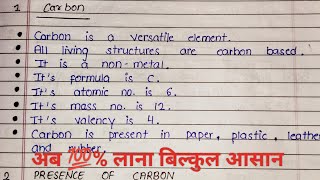 1 Carbon
• Carbon is a versatile element.
• All living structures are carbon based.
• It is a non-metal.
• It's formula is C.
• It's atomic no. is 6.
• It's mass no. is 12.
• It's valency is 4.
• Carbon is present in paper, plastic, leather
and rubber.
अब 💯% लाना बिल्कुल आसान
2 PRESENCE OF CARBON